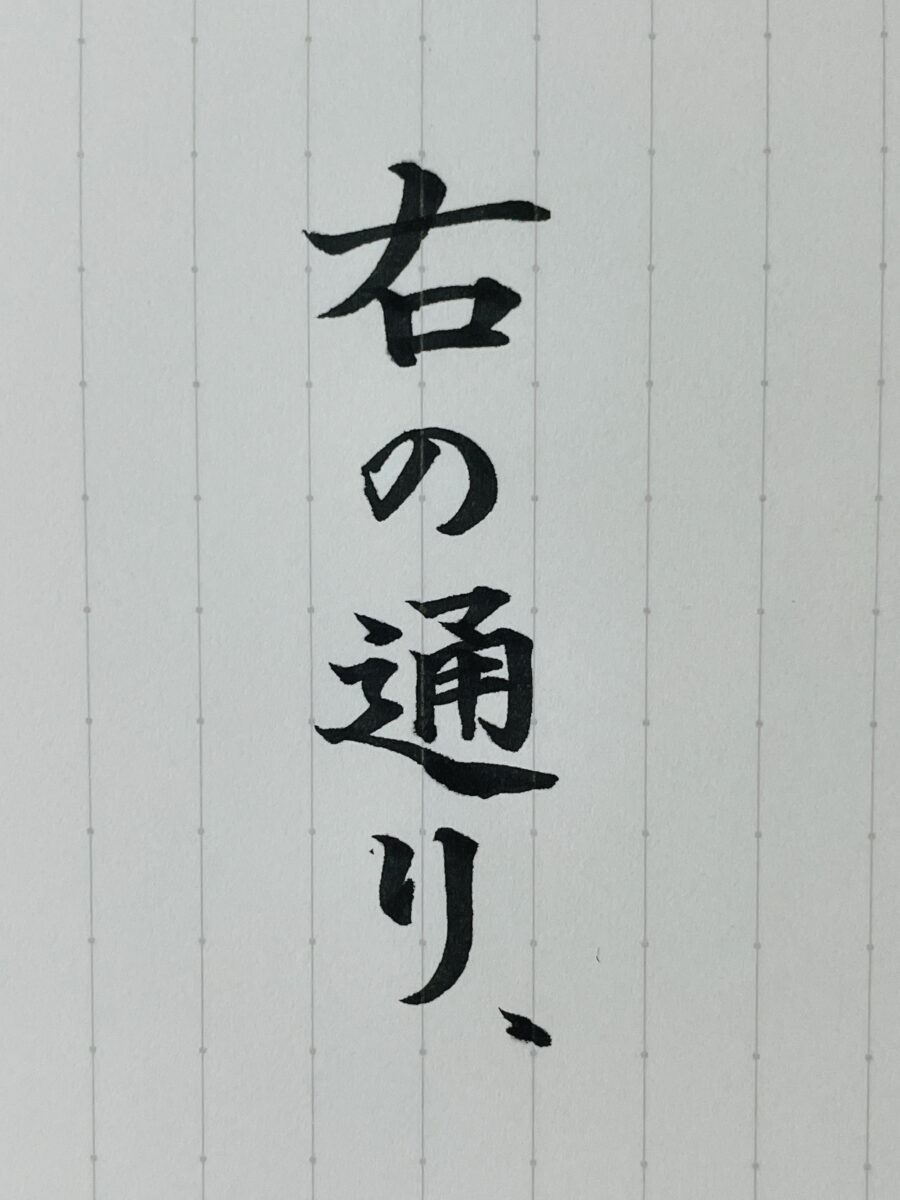 右の通り、